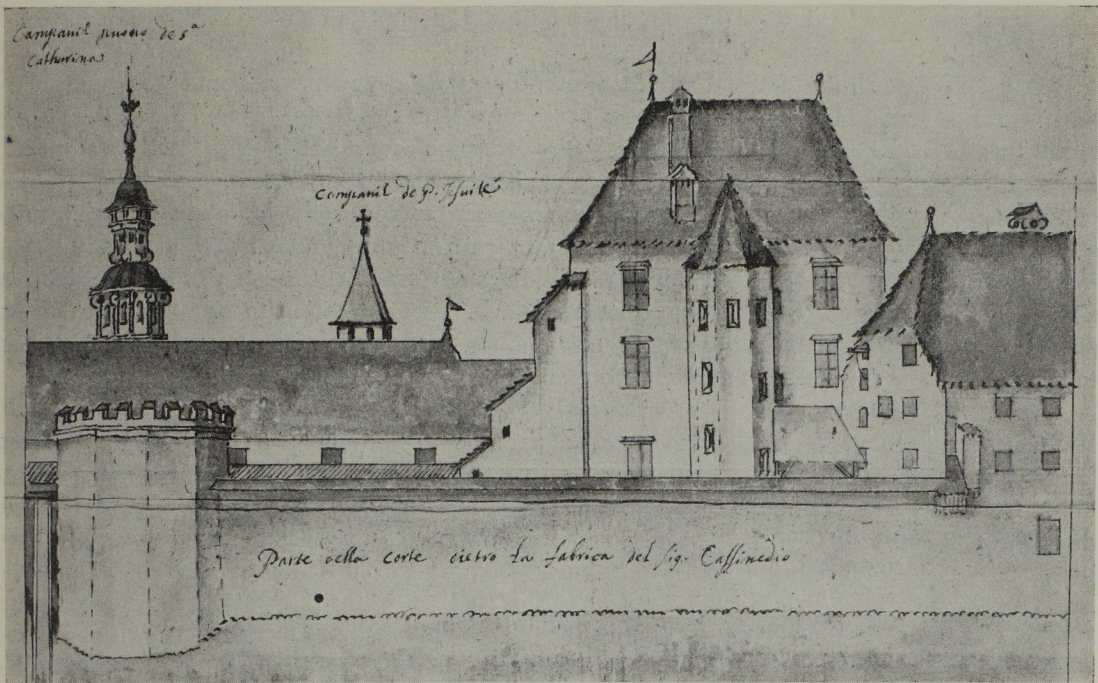 Campanil nuovo de S.ᵃ
Catharina
Campanil de P. Jesuite
Parte della corte dietro la fabrica del Sig. Cassinedio